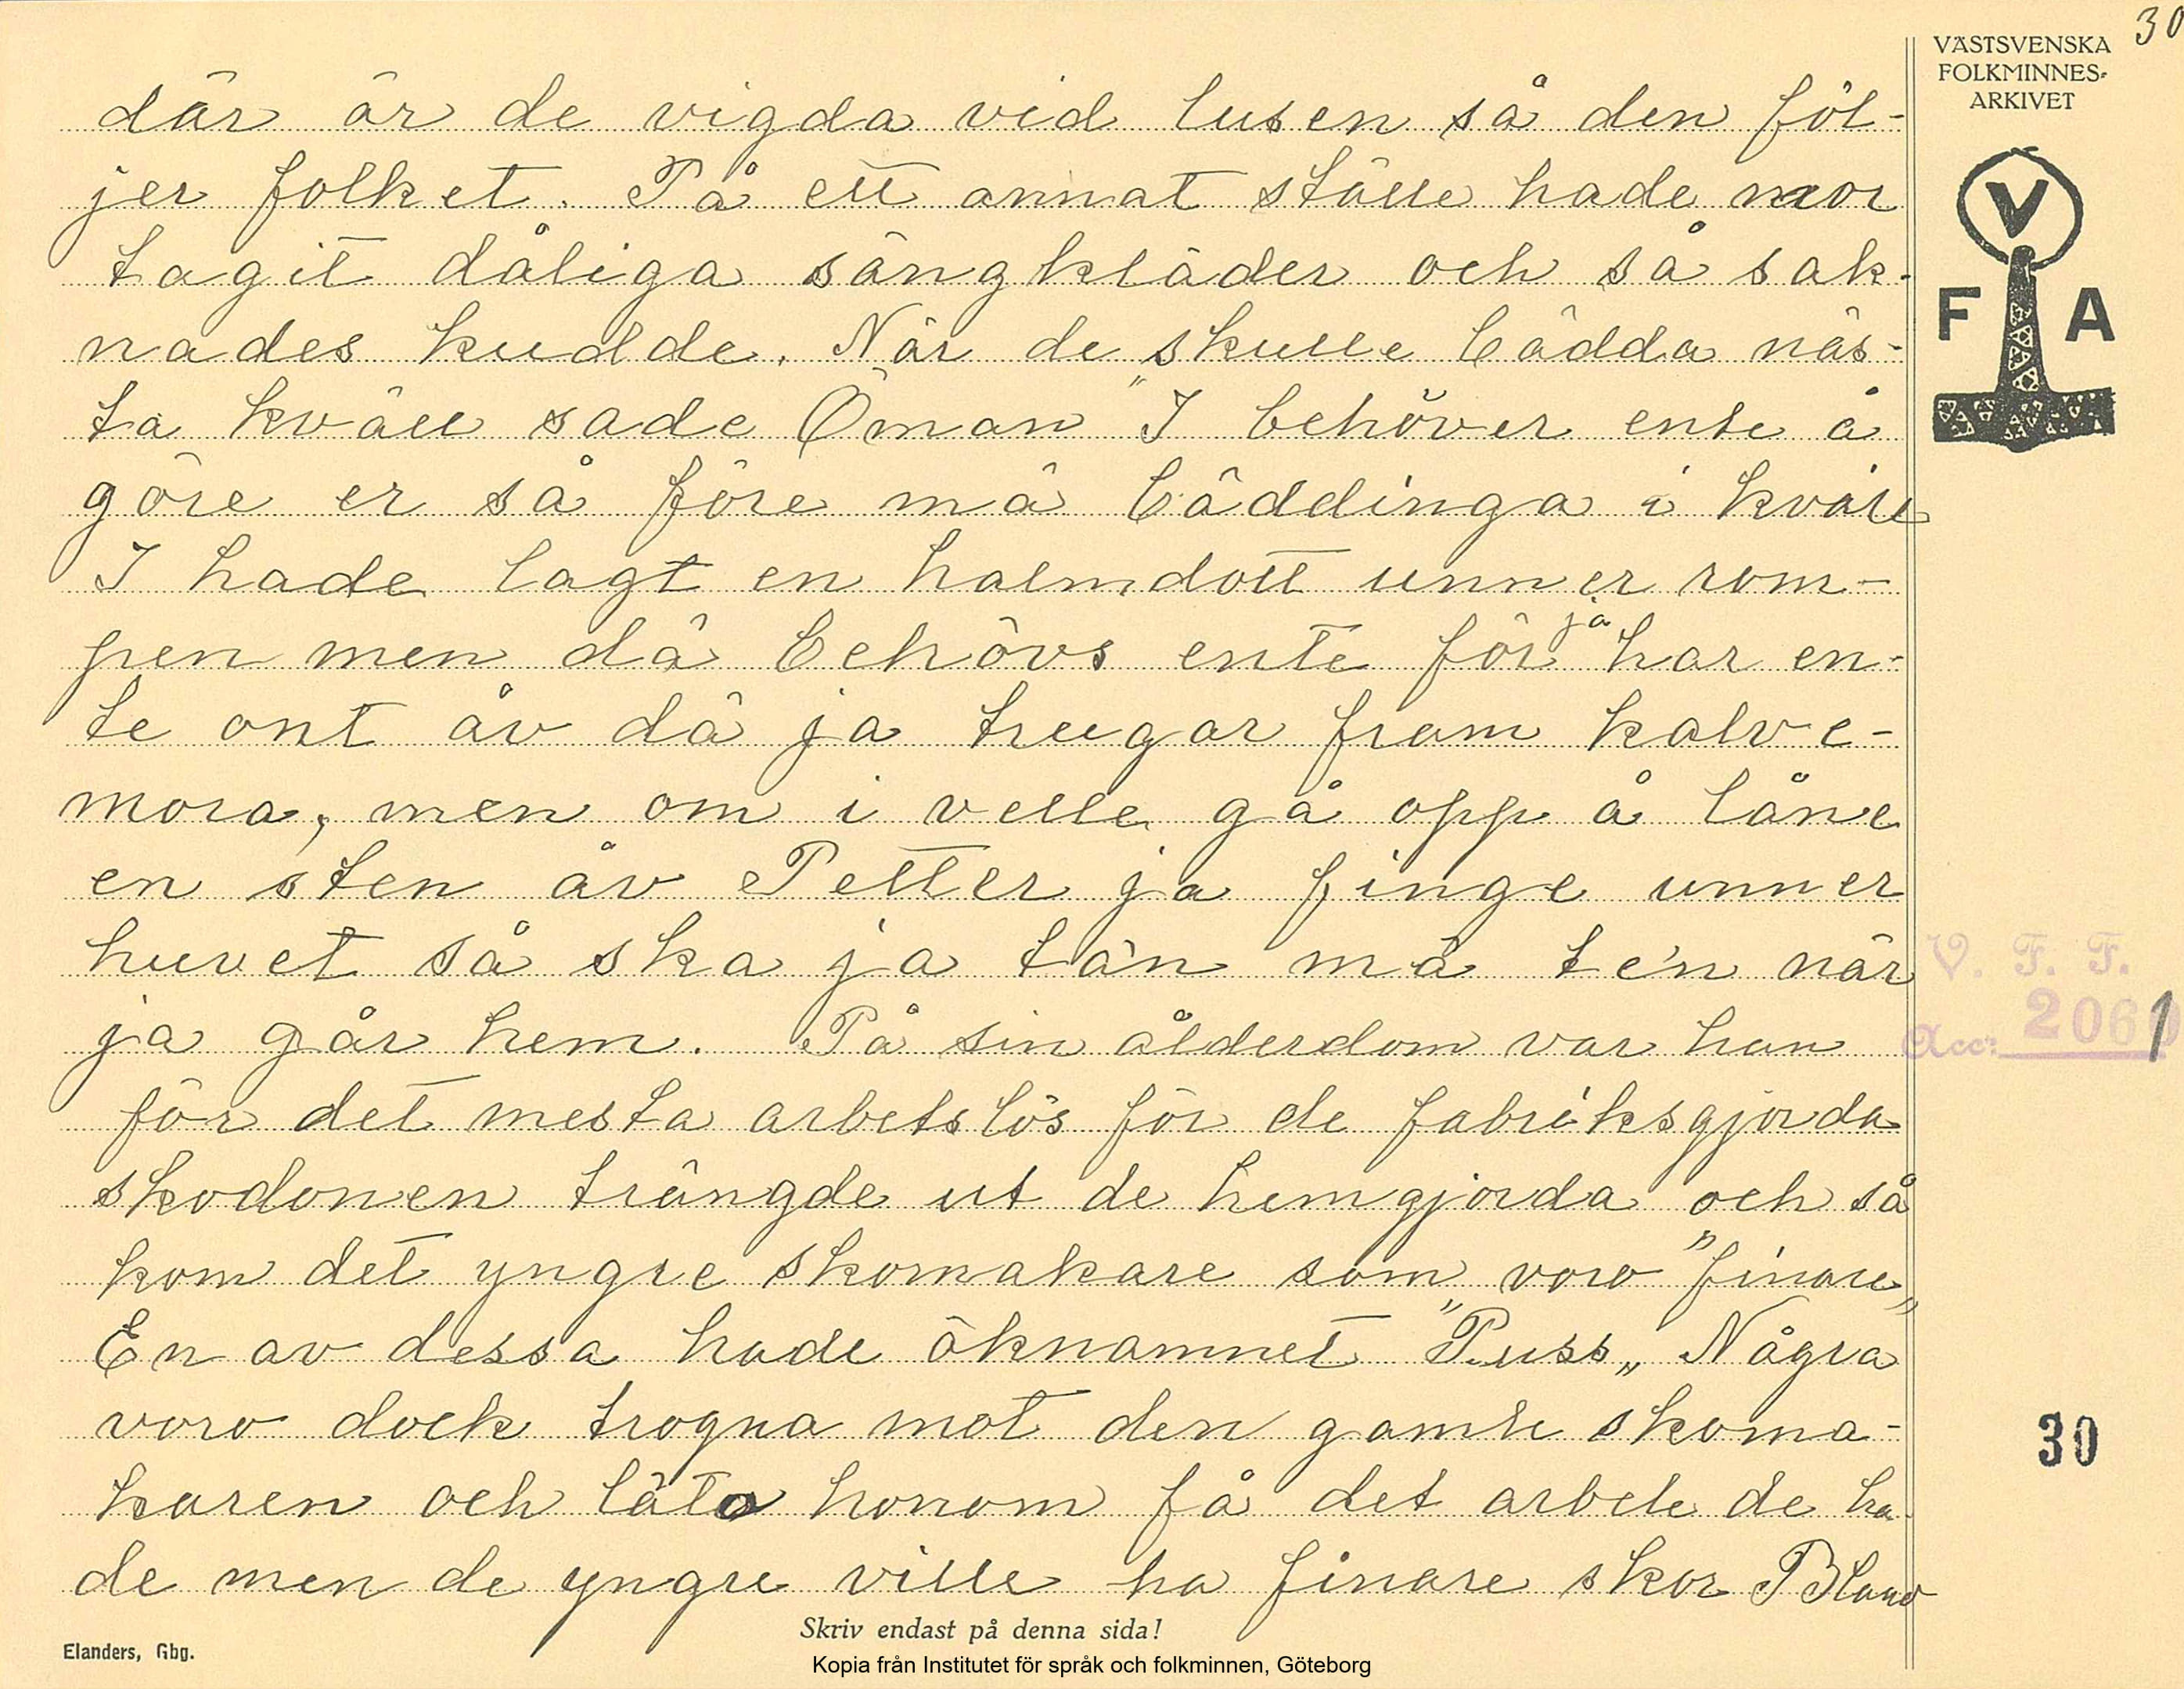 30
VÄSTSVENSKA
FOLKMINNES-
ARKIVET
V
F A
där är de vigda vid lusen så den föl-
jer folket. På ett annat ställe hade mor
tagit dåliga sängkläder och så sak-
nades kudde. När de skulle bädda näs-
ta kväll sade Öman "I behöver ente å
göre er så före mä bäddinga i kväll
I hade lagt en halmdott unner rom-
pen men dä behövs ente för jä har en-
te ont åv dä ja trugar fram kalve-
mora, men om i velle gå opp å låne
en sten åv Petter ja finge unner
huvet så ska ja tä'n mä te'n när
ja går hem. På sin ålderdom var han
för det mesta arbetslös för de fabriksgjorda
skodonen trängde ut de hemgjorda och så
kom det yngre skomakare som voro "finare"
En av dessa hade öknamnet "Puss" Några
voro dock trogna mot den gamle skoma-
karen och läto honom få det arbete de ha
de men de yngre ville ha finare skor Bland
V. F. F.
Acc: 2061
30
Skriv endast på denna sida!
Elanders, Gbg.
Kopia från Institutet för språk och folkminnen, Göteborg